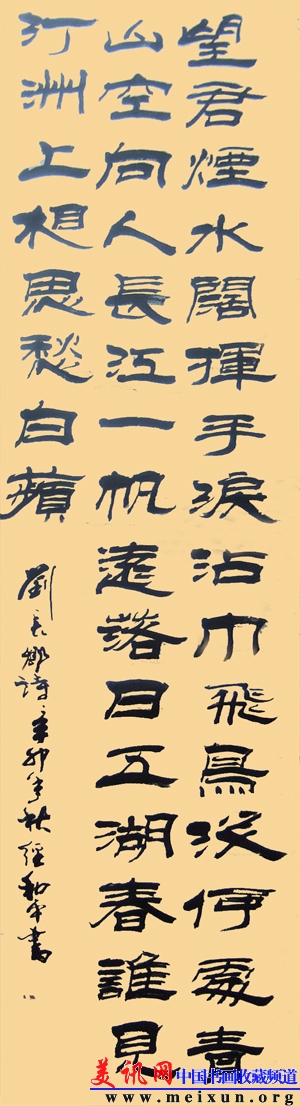 望君煙水闊揮手淚沾巾飛鳥沒何處青
山空向人長江一帆遠落日五湖春誰見
汀洲上相思愁白蘋
劉長卿詩辛卯年秋 書
美讯网 中国书画收藏频道
www.meixun.org